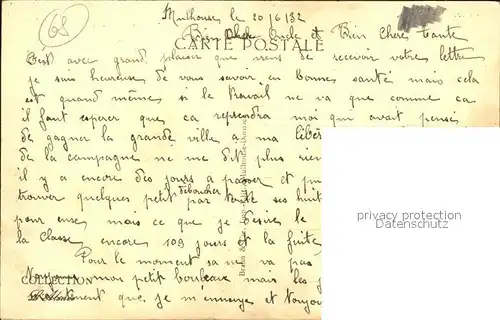 68
Mulhouse le 20/6/32
Bien Cher Oncle et Bien Chère Tante
CARTE POSTALE
C'est avec grand plaisir que viens de recevoir votre lettre
je suis heureuse de vous savoir en bonne santé mais cela
est quand même si le travail ne va que comme ca
il faut esperer que ca reprendra moi qui avait pensé
de gagner la grande ville a ma libér
de la campagne ne me dit plus rien
il y a encore des jours a passer et
trouver quelques petit
pour une mais ce que je désire le
la Classe encore 109 jours et la fuite
Pour le moment sa ne va pas
mon petit bouleau mais les j
COLLECTION
que je m'ennuye et toujou
privacy protection
Datenschutz